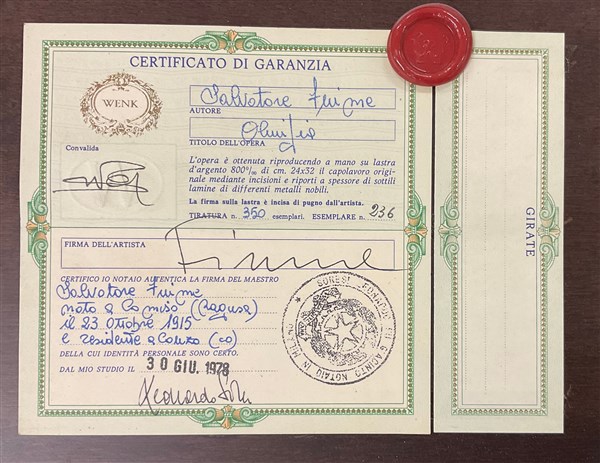 CERTIFICATO DI GARANZIA
WENK
Salvatore Fiume
AUTORE
TITOLO DELL'OPERA
Convalida
L'opera è ottenuta riproducendo a mano su lastra
d'argento 800°/₀₀ di cm. 24x32 il capolavoro origi-
nale mediante incisioni e riporti a spessore di sottili
lamine di differenti metalli nobili.
La firma sulla lastra è incisa di pugno dall'artista.
TIRATURA n. 350 esemplari. ESEMPLARE n. 236
FIRMA DELL'ARTISTA
Fiume
CERTIFICO IO NOTAIO AUTENTICA LA FIRMA DEL MAESTRO
Salvatore Fiume
nato a Comiso (Ragusa)
il 23 ottobre 1915
e residente a Canzo (CO)
DELLA CUI IDENTITÀ PERSONALE SONO CERTO.
DAL MIO STUDIO IL 30 GIU. 1978
NOTAIO IN MILANO
GIRATE